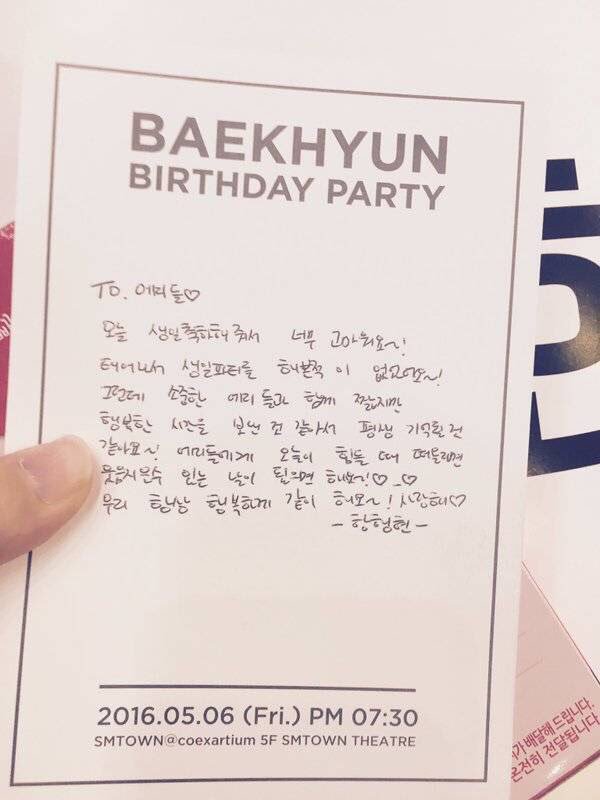 BAEKHYUN
BIRTHDAY PARTY
TO. 에리들♡
오늘 생일축하해줘서 너무 고마워요~!
태어나서 생일파티를 해본적이 없었어요~!
그런데 소중한 에리들과 함께 짧지만
행복한 시간을 보낸 것 같아서 평생 기억될 것
같아요~! 에리들에게 오늘이 힘들 때 떠올리면
웃음지을수 있는 날이 됐으면 해요~!♡_♡
우리 항상 행복하게 같이 해요~! 사랑해♡
2016.05.06 (Fri.) PM 07:30
SMTOWN@coexartium 5F SMTOWN THEATRE
배달해 드립니다.
온전히 전달됩니다